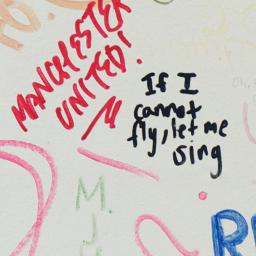 MANCHESTER
UNITED!
If I
cannot
fly, let me
sing
M.